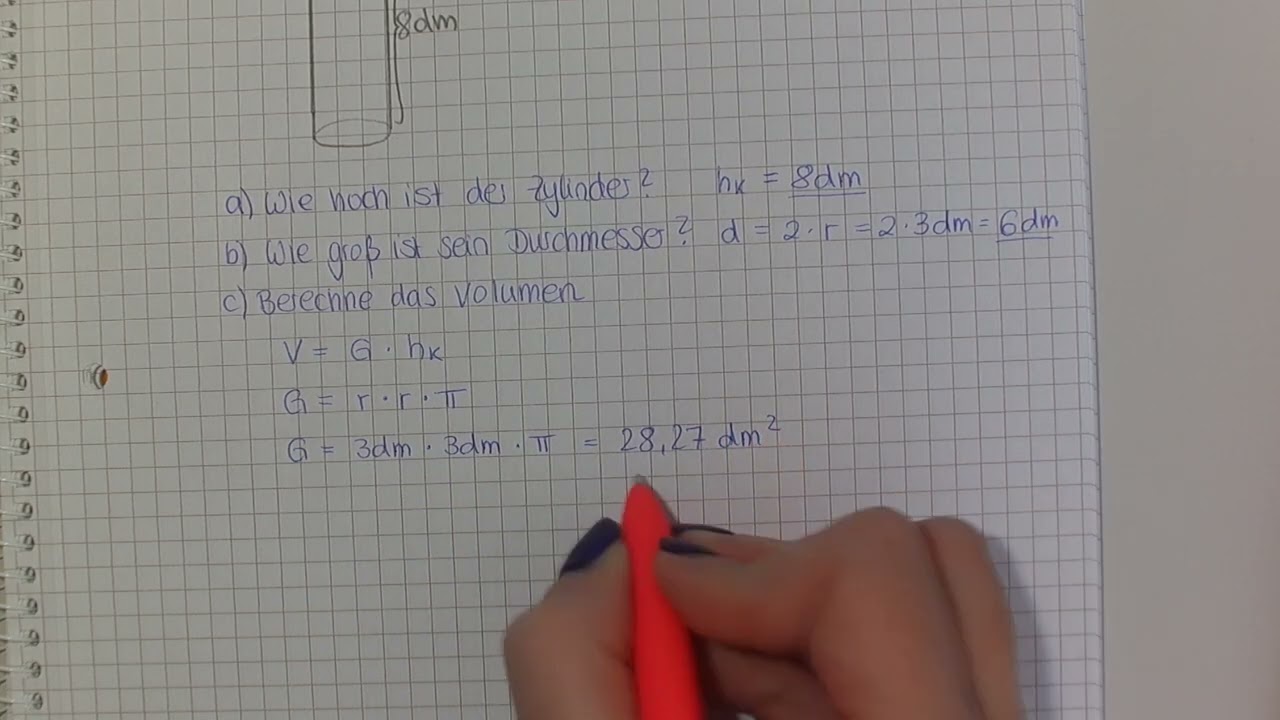 8dm
a) Wie hoch ist der Zylinder? hk = 8dm
b) Wie groß ist sein Durchmesser? d = 2·r = 2·3dm = 6dm
c) Berechne das Volumen
V = G · hk
G = r · r · π
G = 3dm · 3dm · π = 28,27 dm²